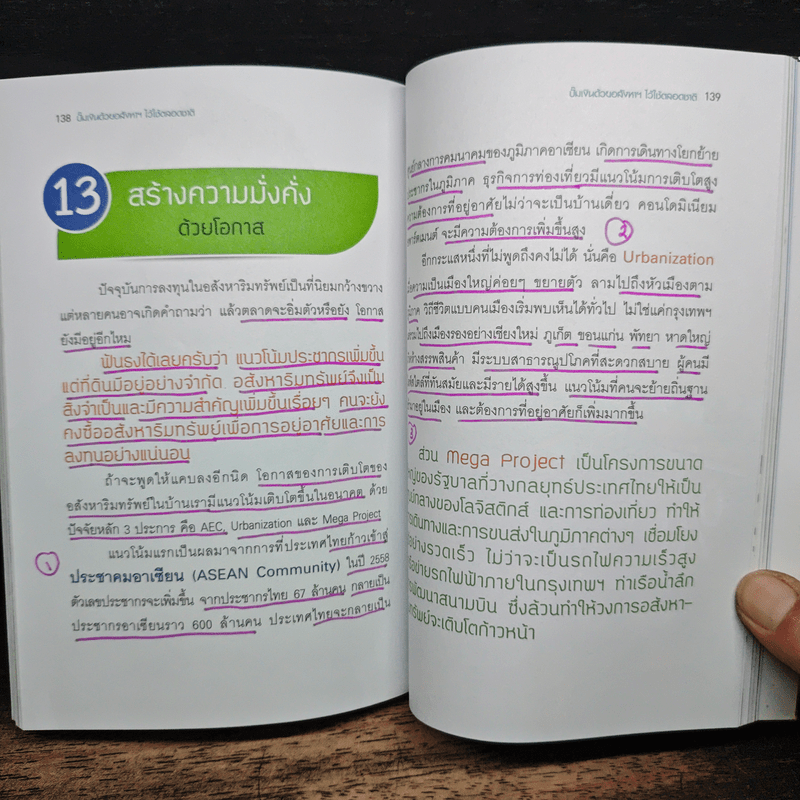 138 ปั๊มเงินด้วยอสังหาฯ ไว้ใช้ตลอดชาติ
13 สร้างความมั่งคั่ง
ด้วยโอกาส
ปัจจุบันการลงทุนในอสังหาริมทรัพย์เป็นที่นิยมกว้างขวาง
แต่หลายคนอาจเกิดคำถามว่า แล้วตลาดจะอิ่มตัวหรือยัง โอกาส
ยังมีอยู่อีกไหม
ฟันธงได้เลยครับว่า แนวโน้มประชากรเพิ่มขึ้น
แต่ที่ดินมีอยู่อย่างจำกัด อสังหาริมทรัพย์จึงเป็น
สิ่งจำเป็นและมีความสำคัญเพิ่มขึ้นเรื่อยๆ คนจะยัง
คงซื้ออสังหาริมทรัพย์เพื่อการอยู่อาศัยและการ
ลงทุนอย่างแน่นอน
ถ้าจะพูดให้แคบลงอีกนิด โอกาสของการเติบโตของ
อสังหาริมทรัพย์ในบ้านเรามีแนวโน้มเติบโตขึ้นในอนาคต ด้วย
ปัจจัยหลัก 3 ประการ คือ AEC, Urbanization และ Mega Project
แนวโน้มแรกเป็นผลมาจากการที่ประเทศไทยก้าวเข้าสู่
1
ประชาคมอาเซียน (ASEAN Community) ในปี 2558
ตัวเลขประชากรจะเพิ่มขึ้น จากประชากรไทย 67 ล้านคน กลายเป็น
ประชากรอาเซียนราว 600 ล้านคน ประเทศไทยจะกลายเป็น
ปั๊มเงินด้วยอสังหาฯ ไว้ใช้ตลอดชาติ 139
กลางการคมนาคมของภูมิภาคอาเซียน เกิดการเดินทางโยกย้าย
ประชากรในภูมิภาค ธุรกิจการท่องเที่ยวมีแนวโน้มการเติบโตสูง
ความต้องการที่อยู่อาศัยไม่ว่าจะเป็นบ้านเดี่ยว คอนโดมิเนียม
จะมีความต้องการเพิ่มขึ้นสูง 2
อีกกระแสหนึ่งที่ไม่พูดถึงคงไม่ได้ นั่นคือ Urbanization
ความเป็นเมืองใหญ่ค่อยๆ ขยายตัว ลามไปถึงหัวเมืองตาม
วิถีชีวิตแบบคนเมืองเริ่มพบเห็นได้ทั่วไป ไม่ใช่แค่กรุงเทพฯ
ไปถึงเมืองรองอย่างเชียงใหม่ ภูเก็ต ขอนแก่น พัทยา หาดใหญ่
ห้างสรรพสินค้า มีระบบสาธารณูปโภคที่สะดวกสบาย ผู้คนมี
ที่ทันสมัยและมีรายได้สูงขึ้น แนวโน้มที่คนจะย้ายถิ่นฐาน
อยู่ในเมือง และต้องการที่อยู่อาศัยก็เพิ่มมากขึ้น
3
ส่วน Mega Project เป็นโครงการขนาด
ใหญ่ของรัฐบาลที่วางกลยุทธ์ประเทศไทยให้เป็น
กลางของโลจิสติกส์ และการท่องเที่ยว ทำให้
การเดินทางและการขนส่งในภูมิภาคต่างๆ เชื่อมโยง
อย่างรวดเร็ว ไม่ว่าจะเป็นรถไฟความเร็วสูง
รถไฟฟ้าภายในกรุงเทพฯ ท่าเรือน้ำลึก
พัฒนาสนามบิน ซึ่งล้วนทำให้วงการอสังหา-
ริมทรัพย์จะเติบโตก้าวหน้า